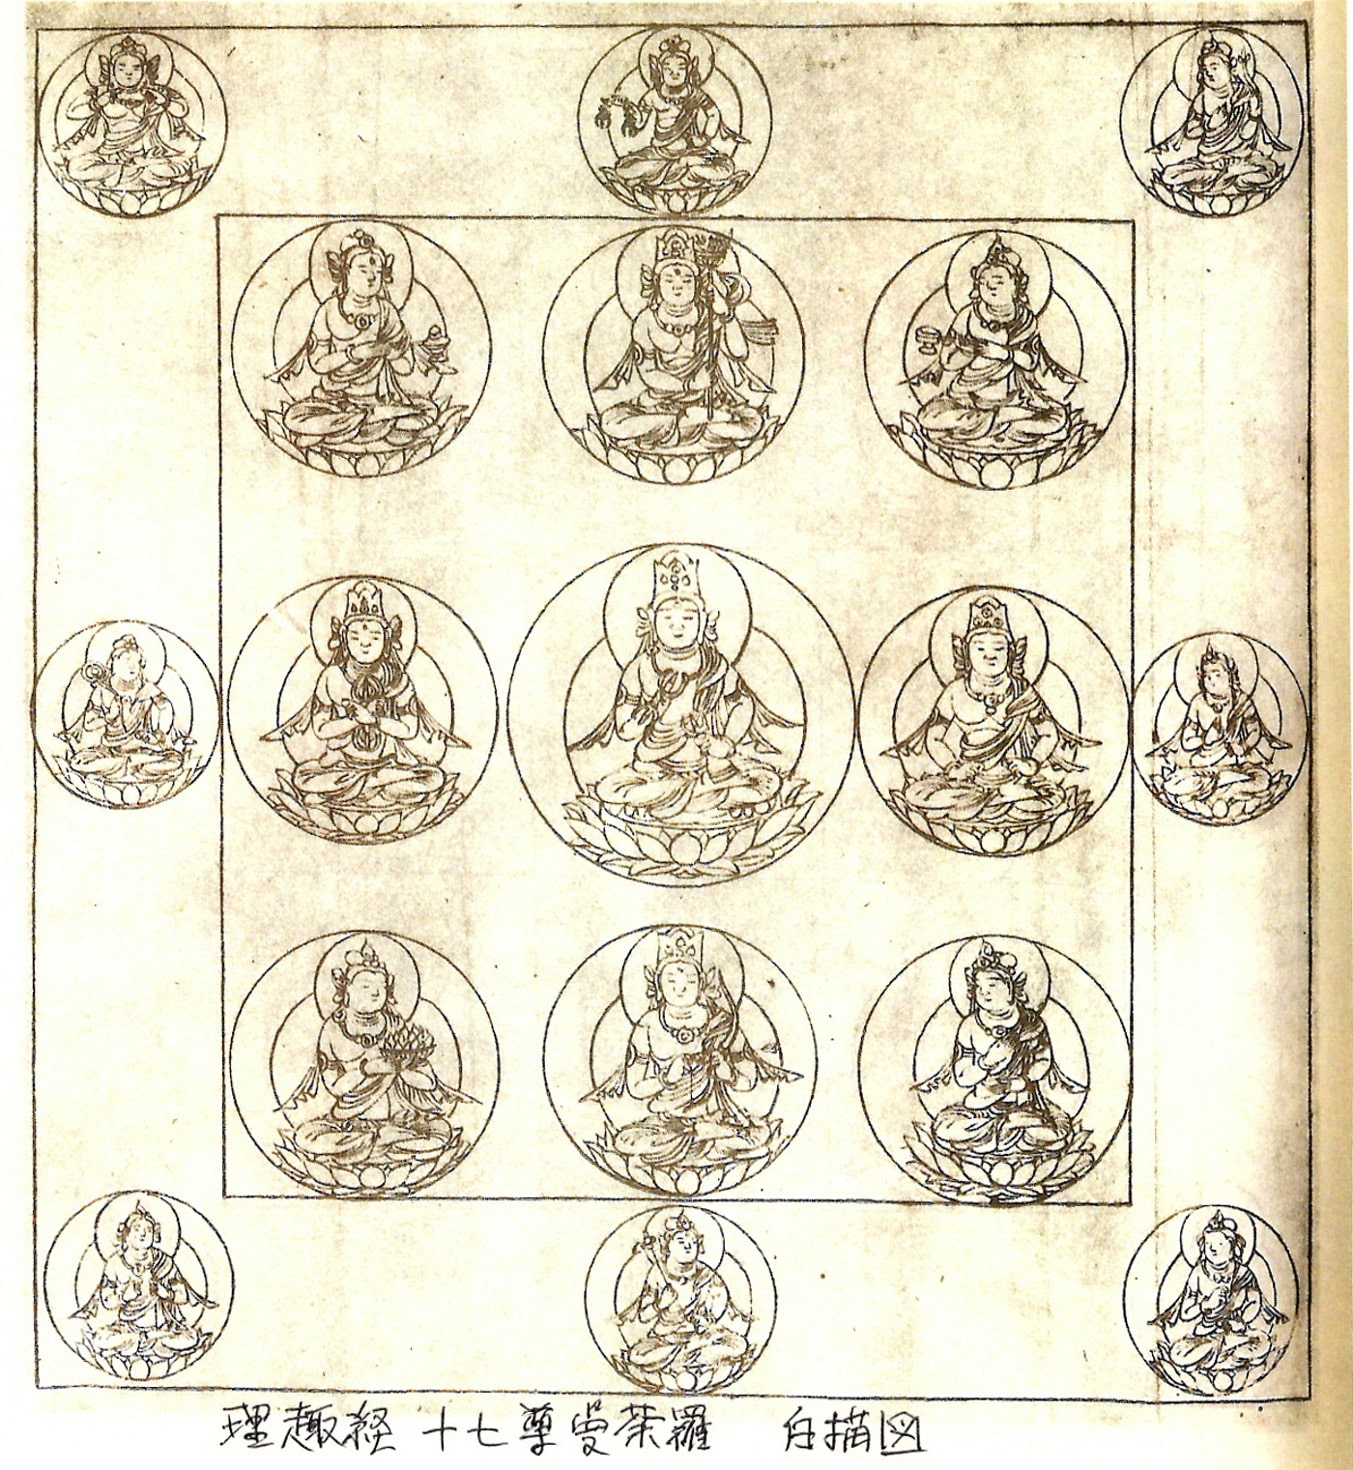 理趣経 十七尊曼荼羅 白描図